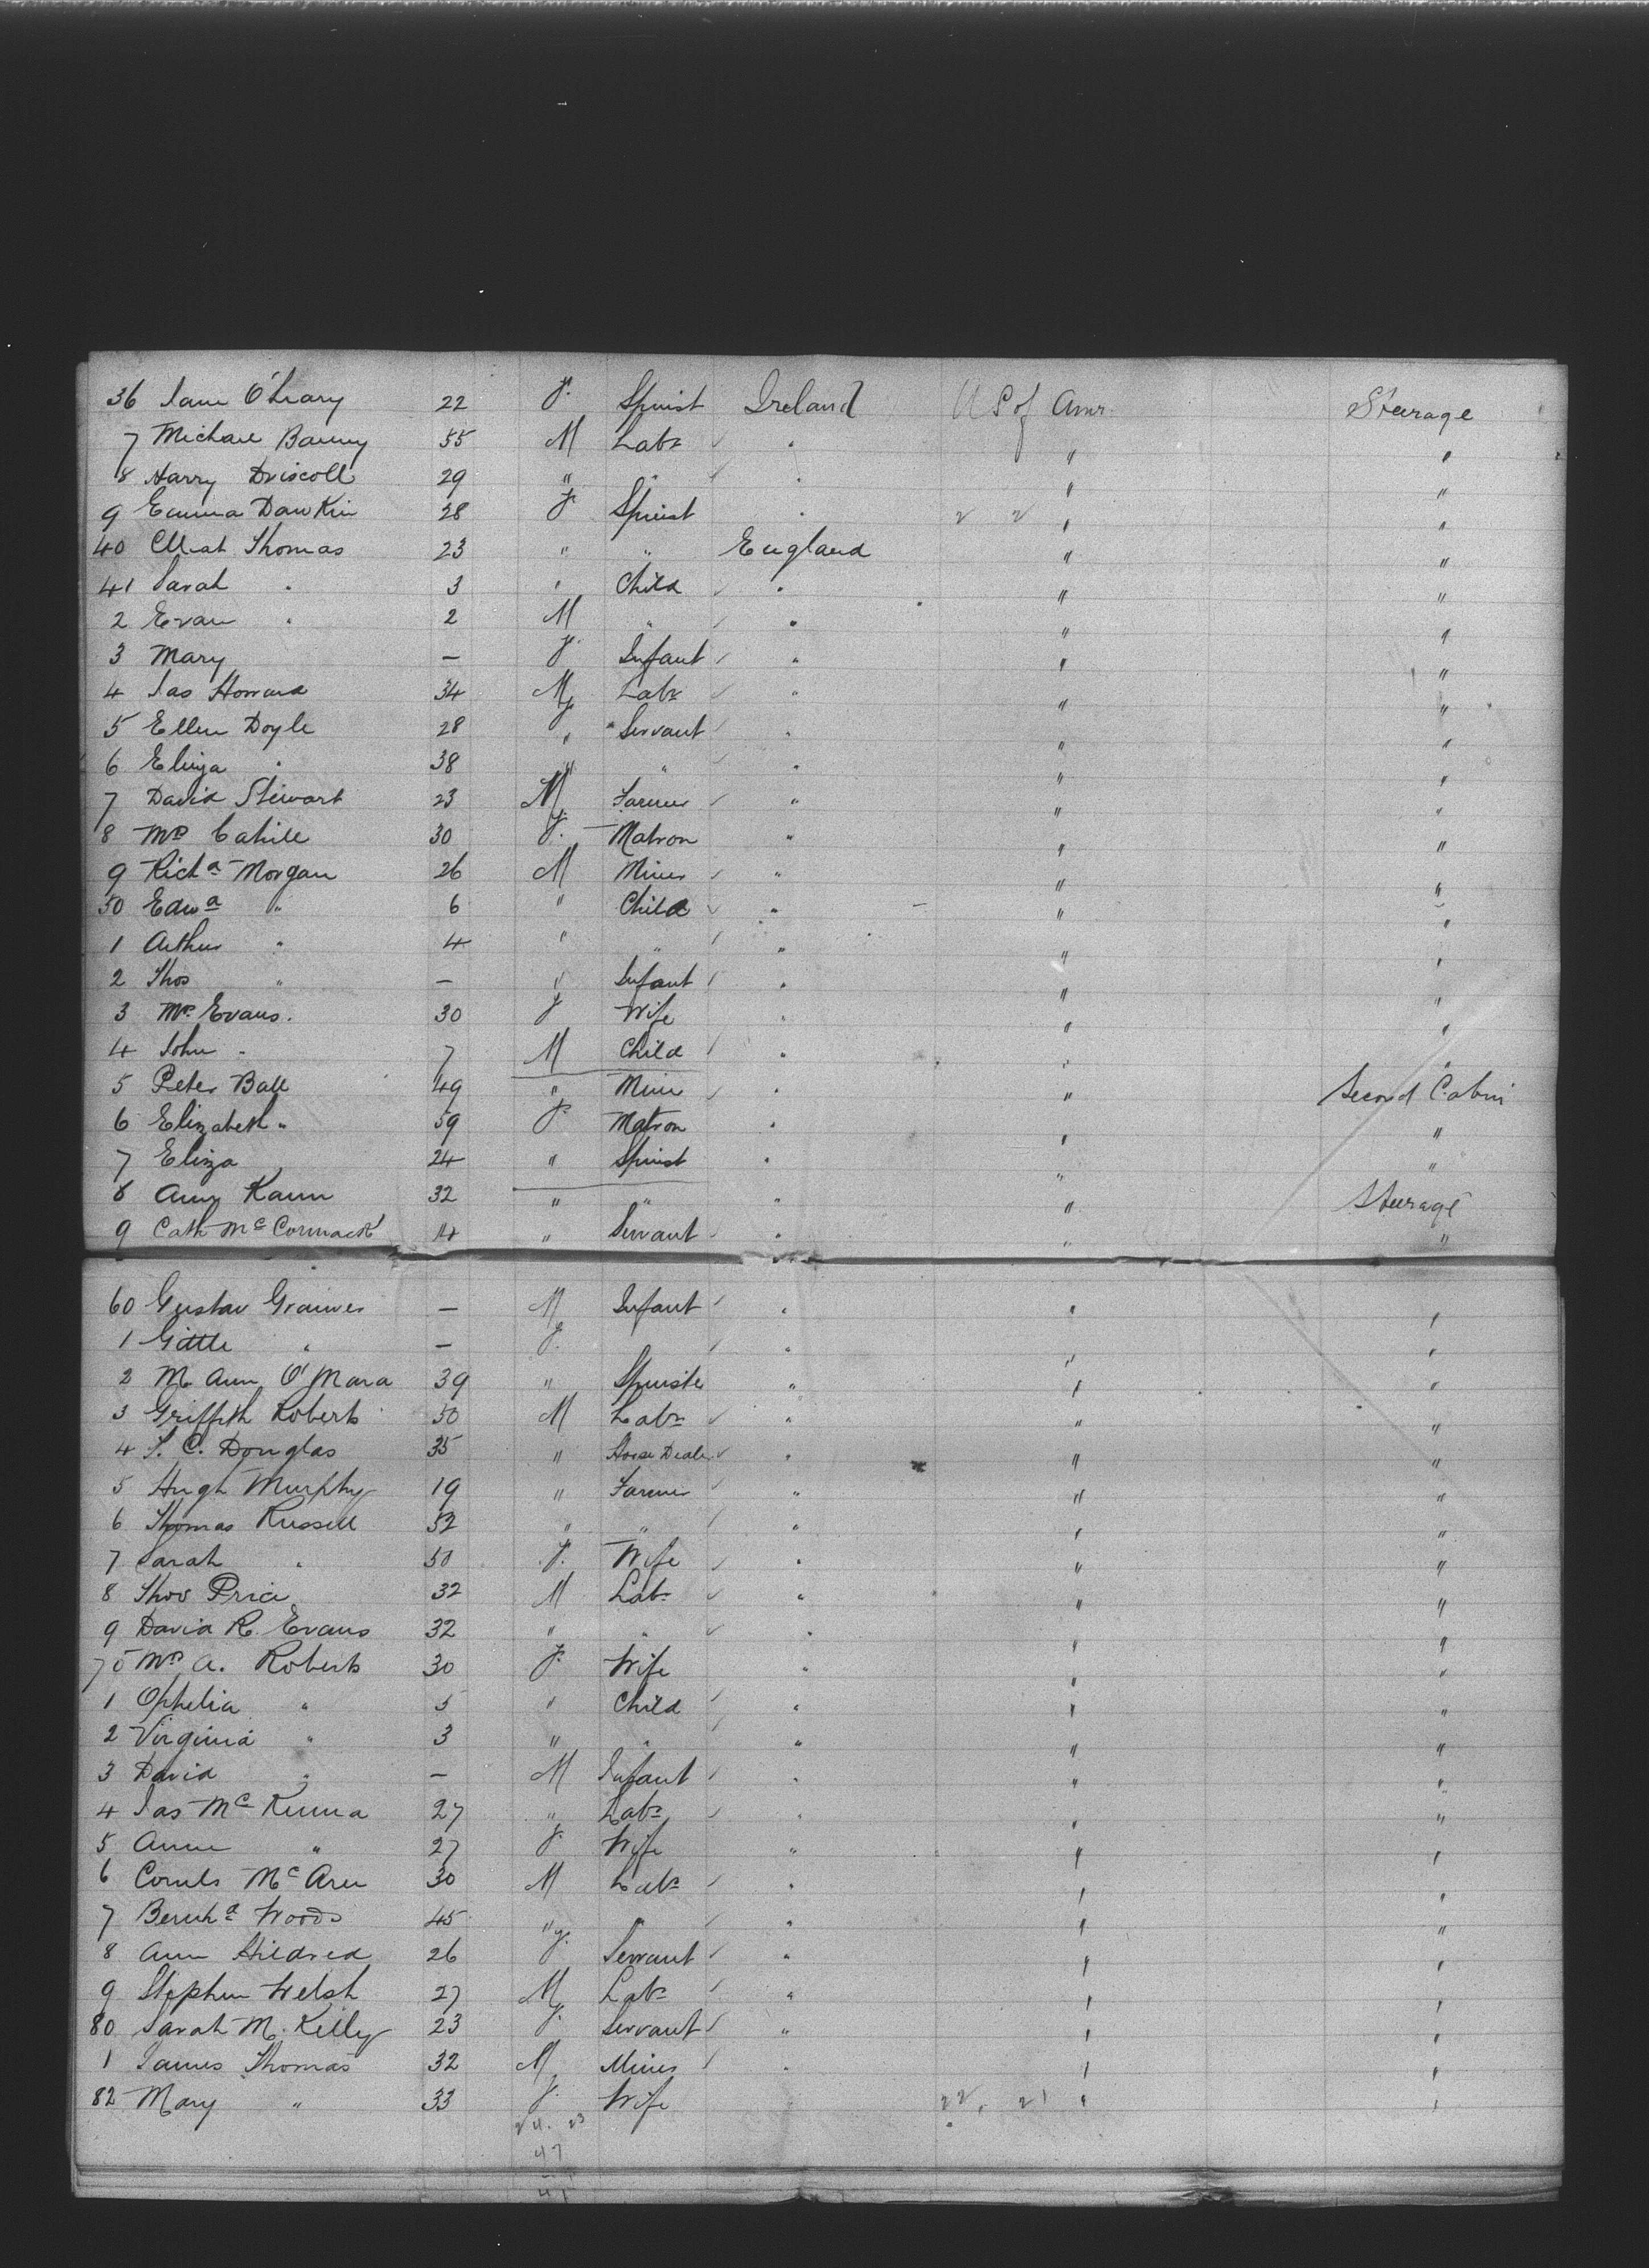 36 Jane O'Leary 22 F. Spinst Ireland U S of Amr. Steerage
7 Michael Barry 55 M Labr " " "
8 Harry Driscoll 29 " " " " "
9 Emma Dawkin 28 F Spinst " " "
40 Thomas 23 " " England " "
41 Sarah " 3 " Child " " "
2 Evan " 2 M " " " "
3 Mary — F Infant " " "
4 Jas Howard 34 M Labr " " "
5 Ellen Doyle 28 F " Servant " " "
6 Eliza " 38 " " " " "
7 David Stewart 23 M Farmer " " "
8 Mrs Cahill 30 F. Matron " " "
9 Richd Morgan 26 M Miner " " "
50 Edwd " 6 " Child " " "
1 Arthur " 4 " " " " "
2 Thos " — " Infant " " "
3 Mrs Evans. 30 F Wife " " "
4 John " 7 M Child " " "
5 Peter Ball 49 " Miner " " Second Cabin
6 Elizabeth " 59 F Matron " " "
7 Eliza 24 " Spinst " " "
8 Amy Kann 32 " " " " Steerage
9 Cath McCormack 14 " Servant " " "
60 Gustav 	— M Infant " " "
1 Gittle " — F. " " "
2 M Ann O'Mara 39 " Spinster " " "
3 Griffith Roberts 50 M Labr " " "
4 T. C. Douglas 35 " Horse Dealer " " "
5 Hugh Murphy 19 " Farmer " " "
6 Thomas Russell 52 " " " " "
7 Sarah " 50 F. Wife " " "
8 Thos Price 32 M Labr " " "
9 David R. Evans 32 " " " " "
70 Mrs A. Roberts 30 F. Wife " " "
1 Ophelia " 5 " Child " " "
2 Virginia " 3 " " " " "
3 David " — M Infant " " "
4 Jas McKenna 27 " Labr " " "
5 Anne " 27 F. Wife " " "
6 Cornls 30 M Labr " " "
7 Woods 45 " " " " "
8 Ann Hildred 26 F. Servant " " "
9 Stephen Welsh 27 M Labr " " "
80 Sarah M. Kelly 23 F. Servant " " "
1 James Thomas 32 M Miner " " "
82 Mary " 33 F. Wife 22. 21 " "
24. 23
47